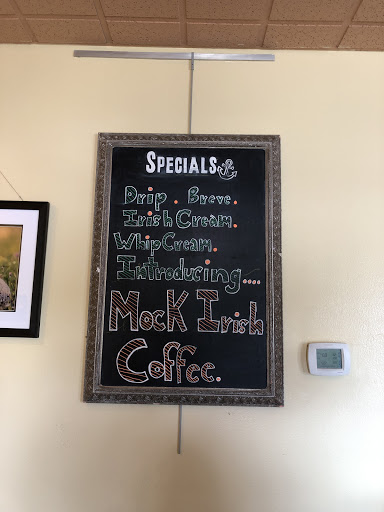 SPECIALS
Drip. Breve.
Irish Cream.
Whip Cream.
Introducing....
Mock Irish
Coffee.